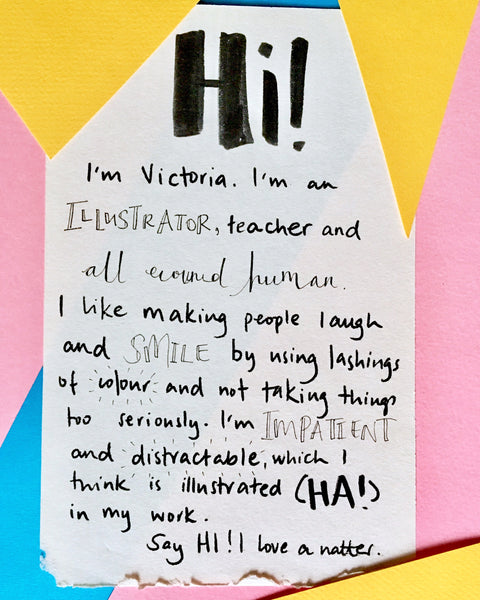 Hi!
I'm Victoria. I'm an
ILLUSTRATOR, teacher and
all around human.
I like making people laugh
and SMILE by using lashings
of colour and not taking things
too seriously. I'm IMPATIENT
and distractable, which I
think is illustrated (HA!)
in my work.
Say HI! I love a natter.